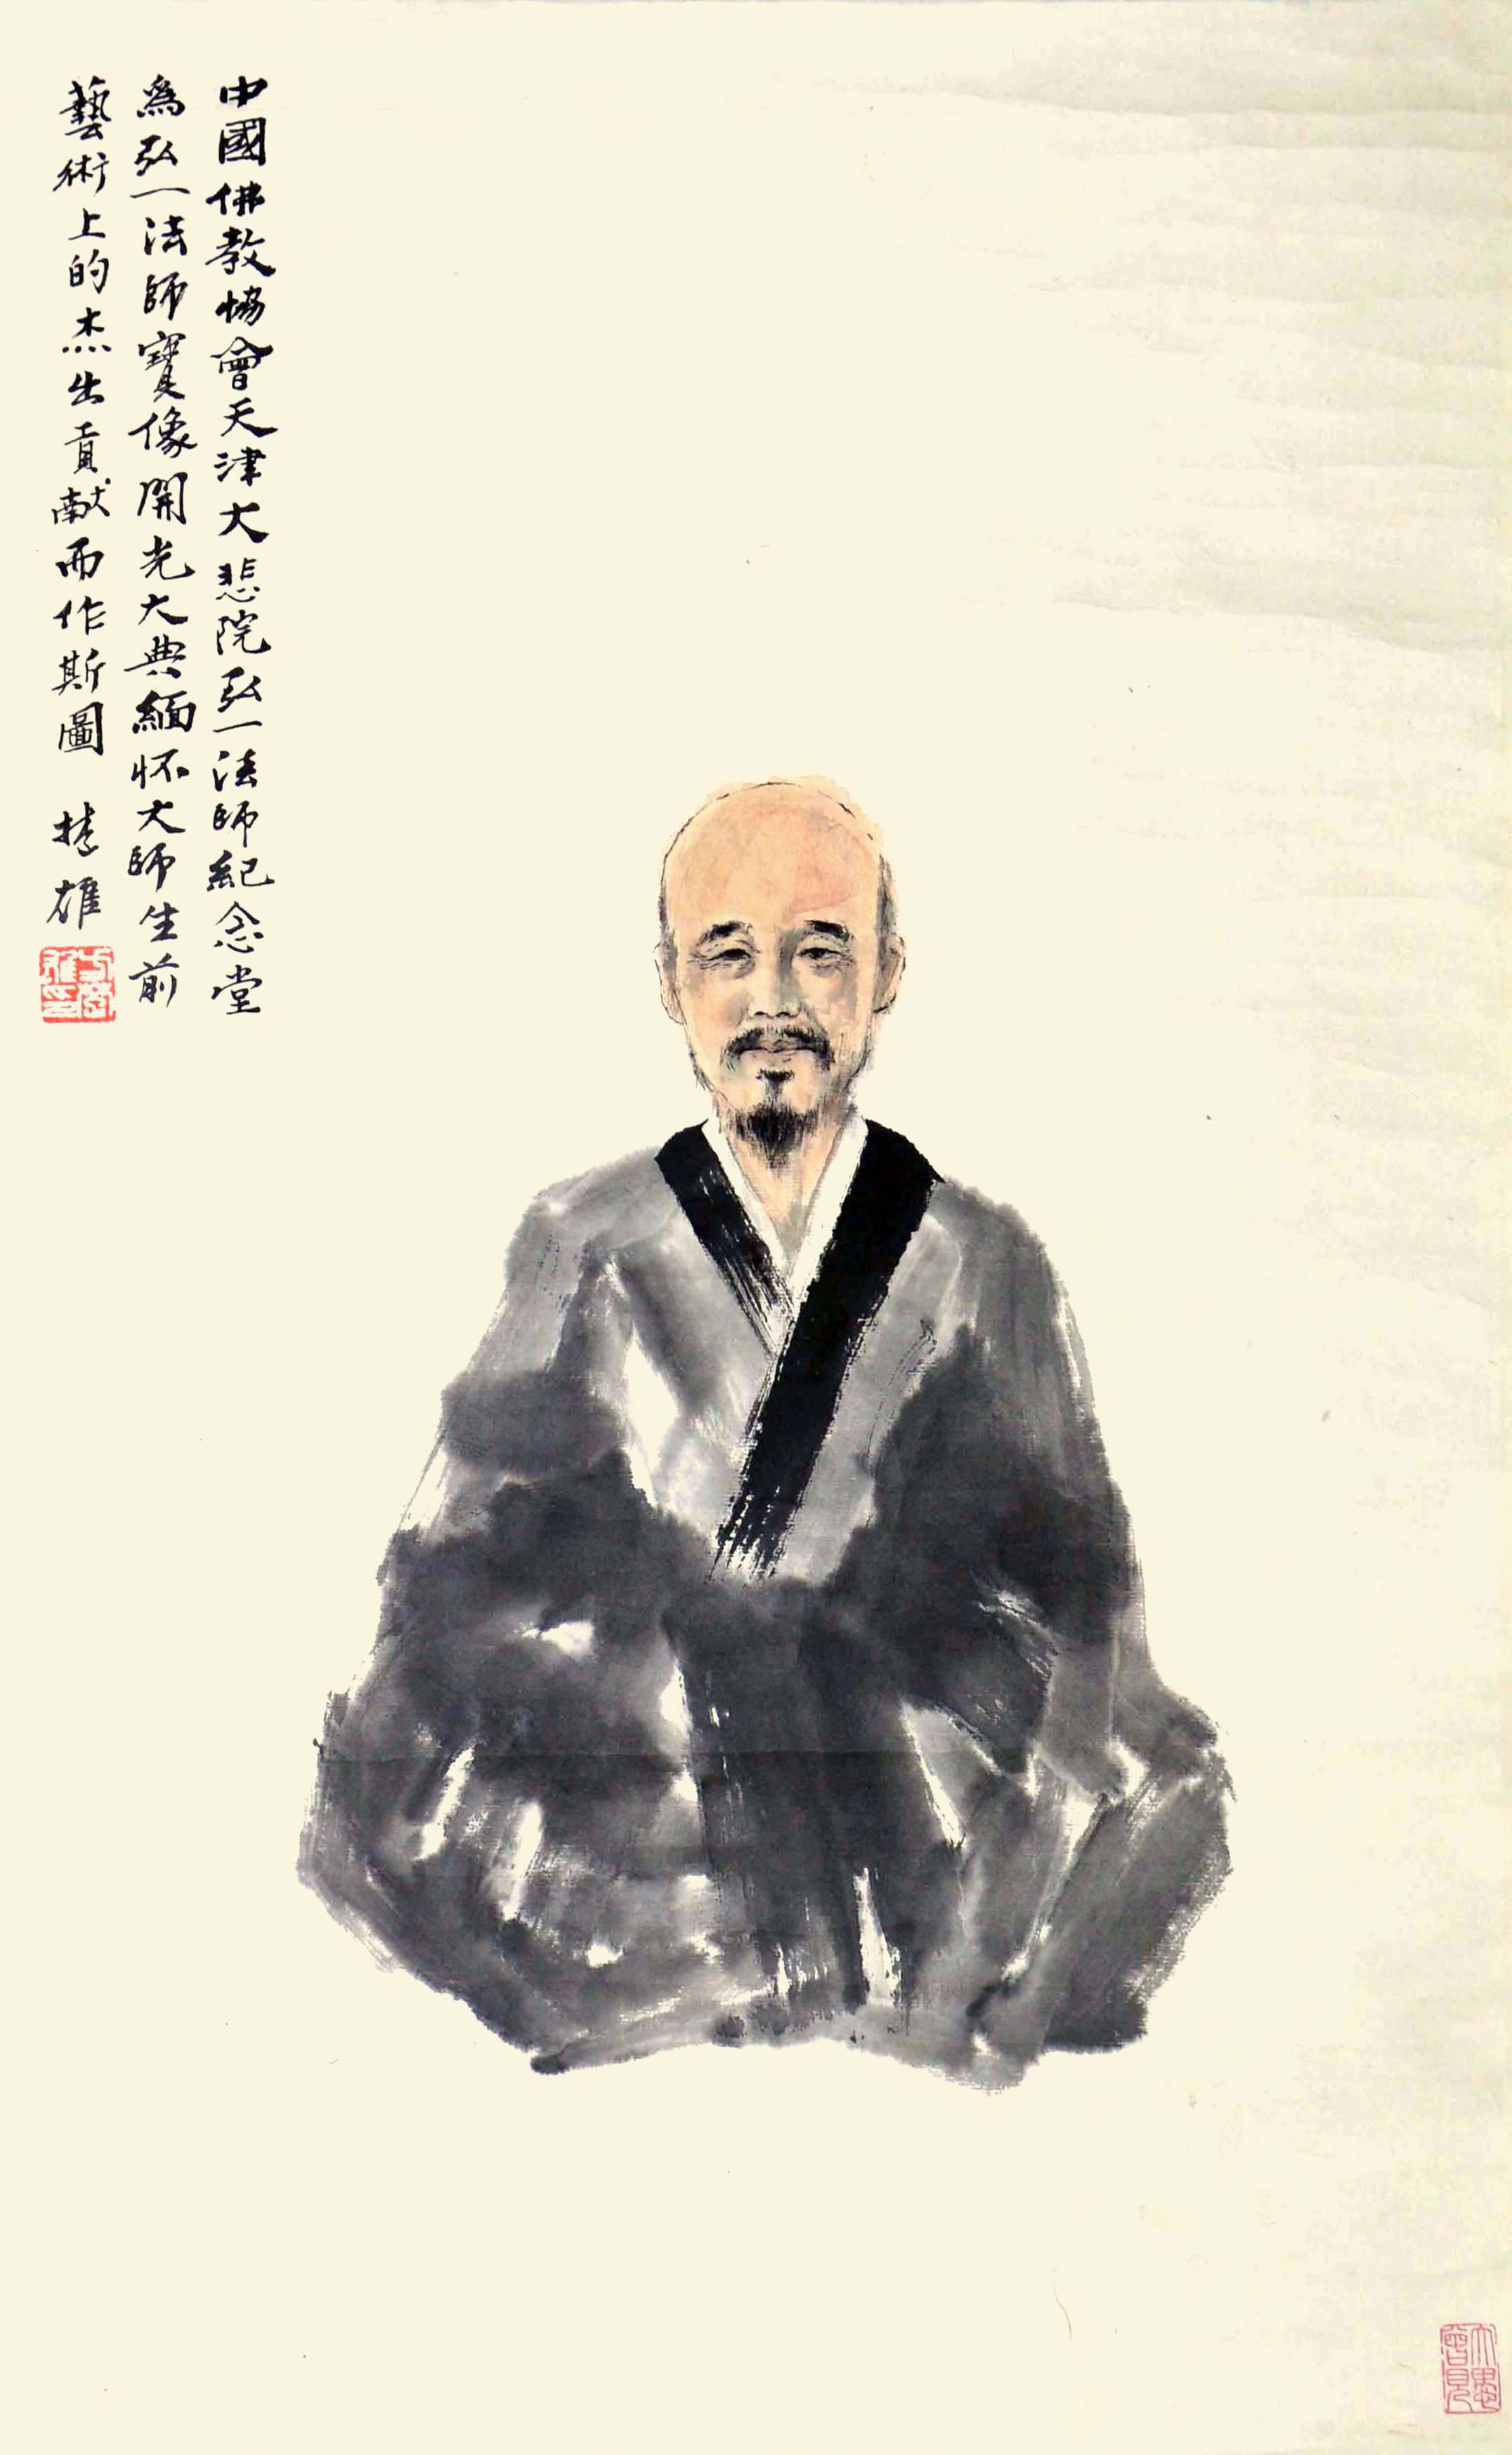 中國佛教協會天津大悲院弘一法師紀念堂
爲弘一法師寶像開光大典緬怀大師生前
藝術上的杰出貢献而作斯圖
雄